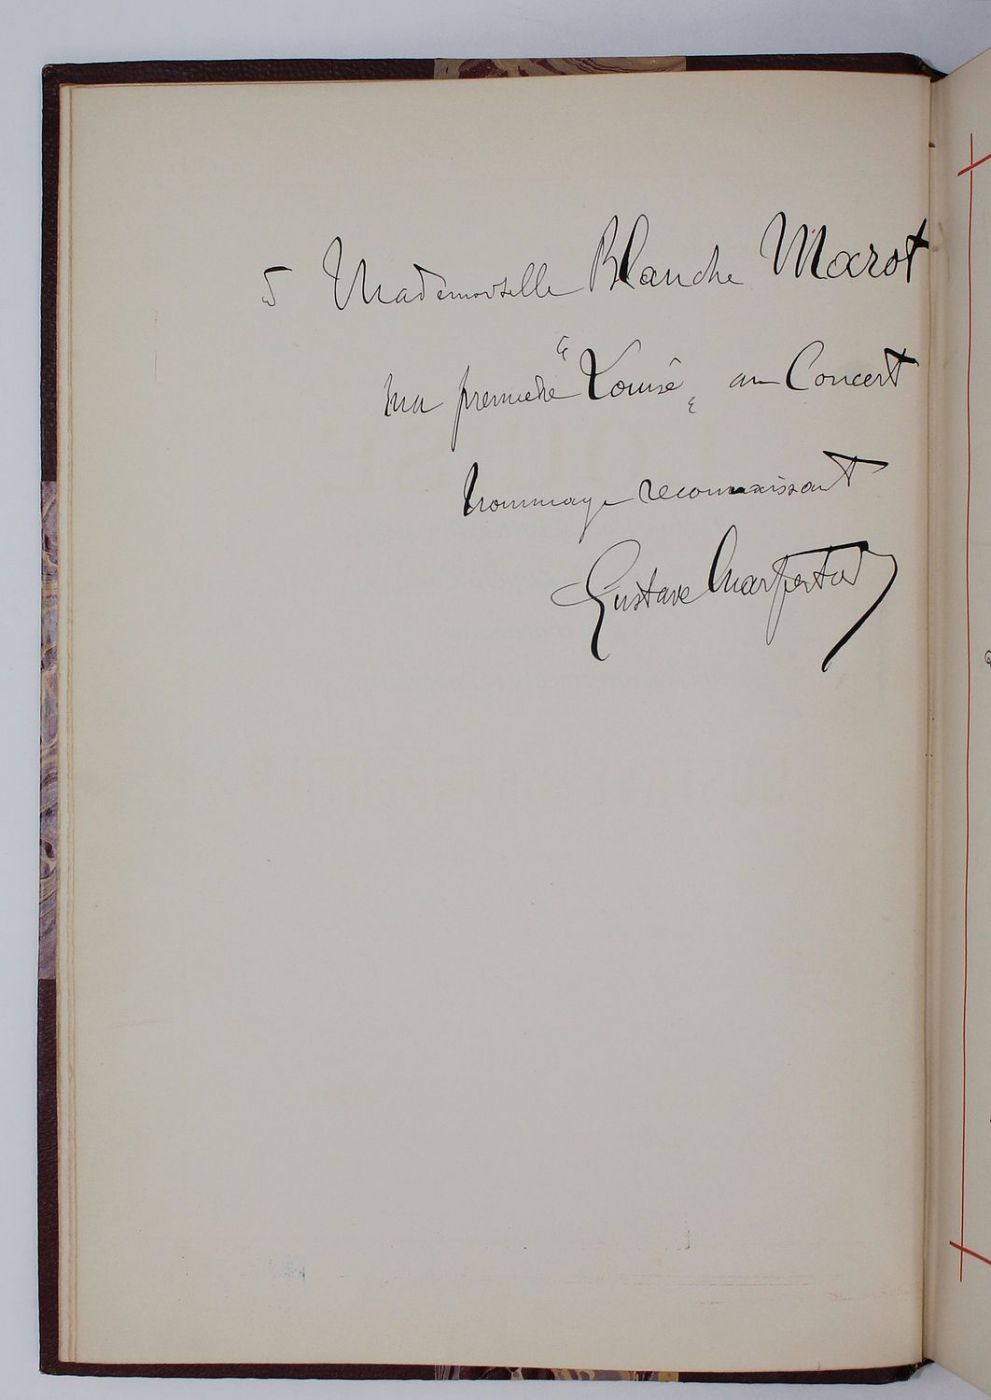 à Mademoiselle Blanche Marot
ma première "Louise" au Concert
hommage reconnaissant
Gustave Charpentier